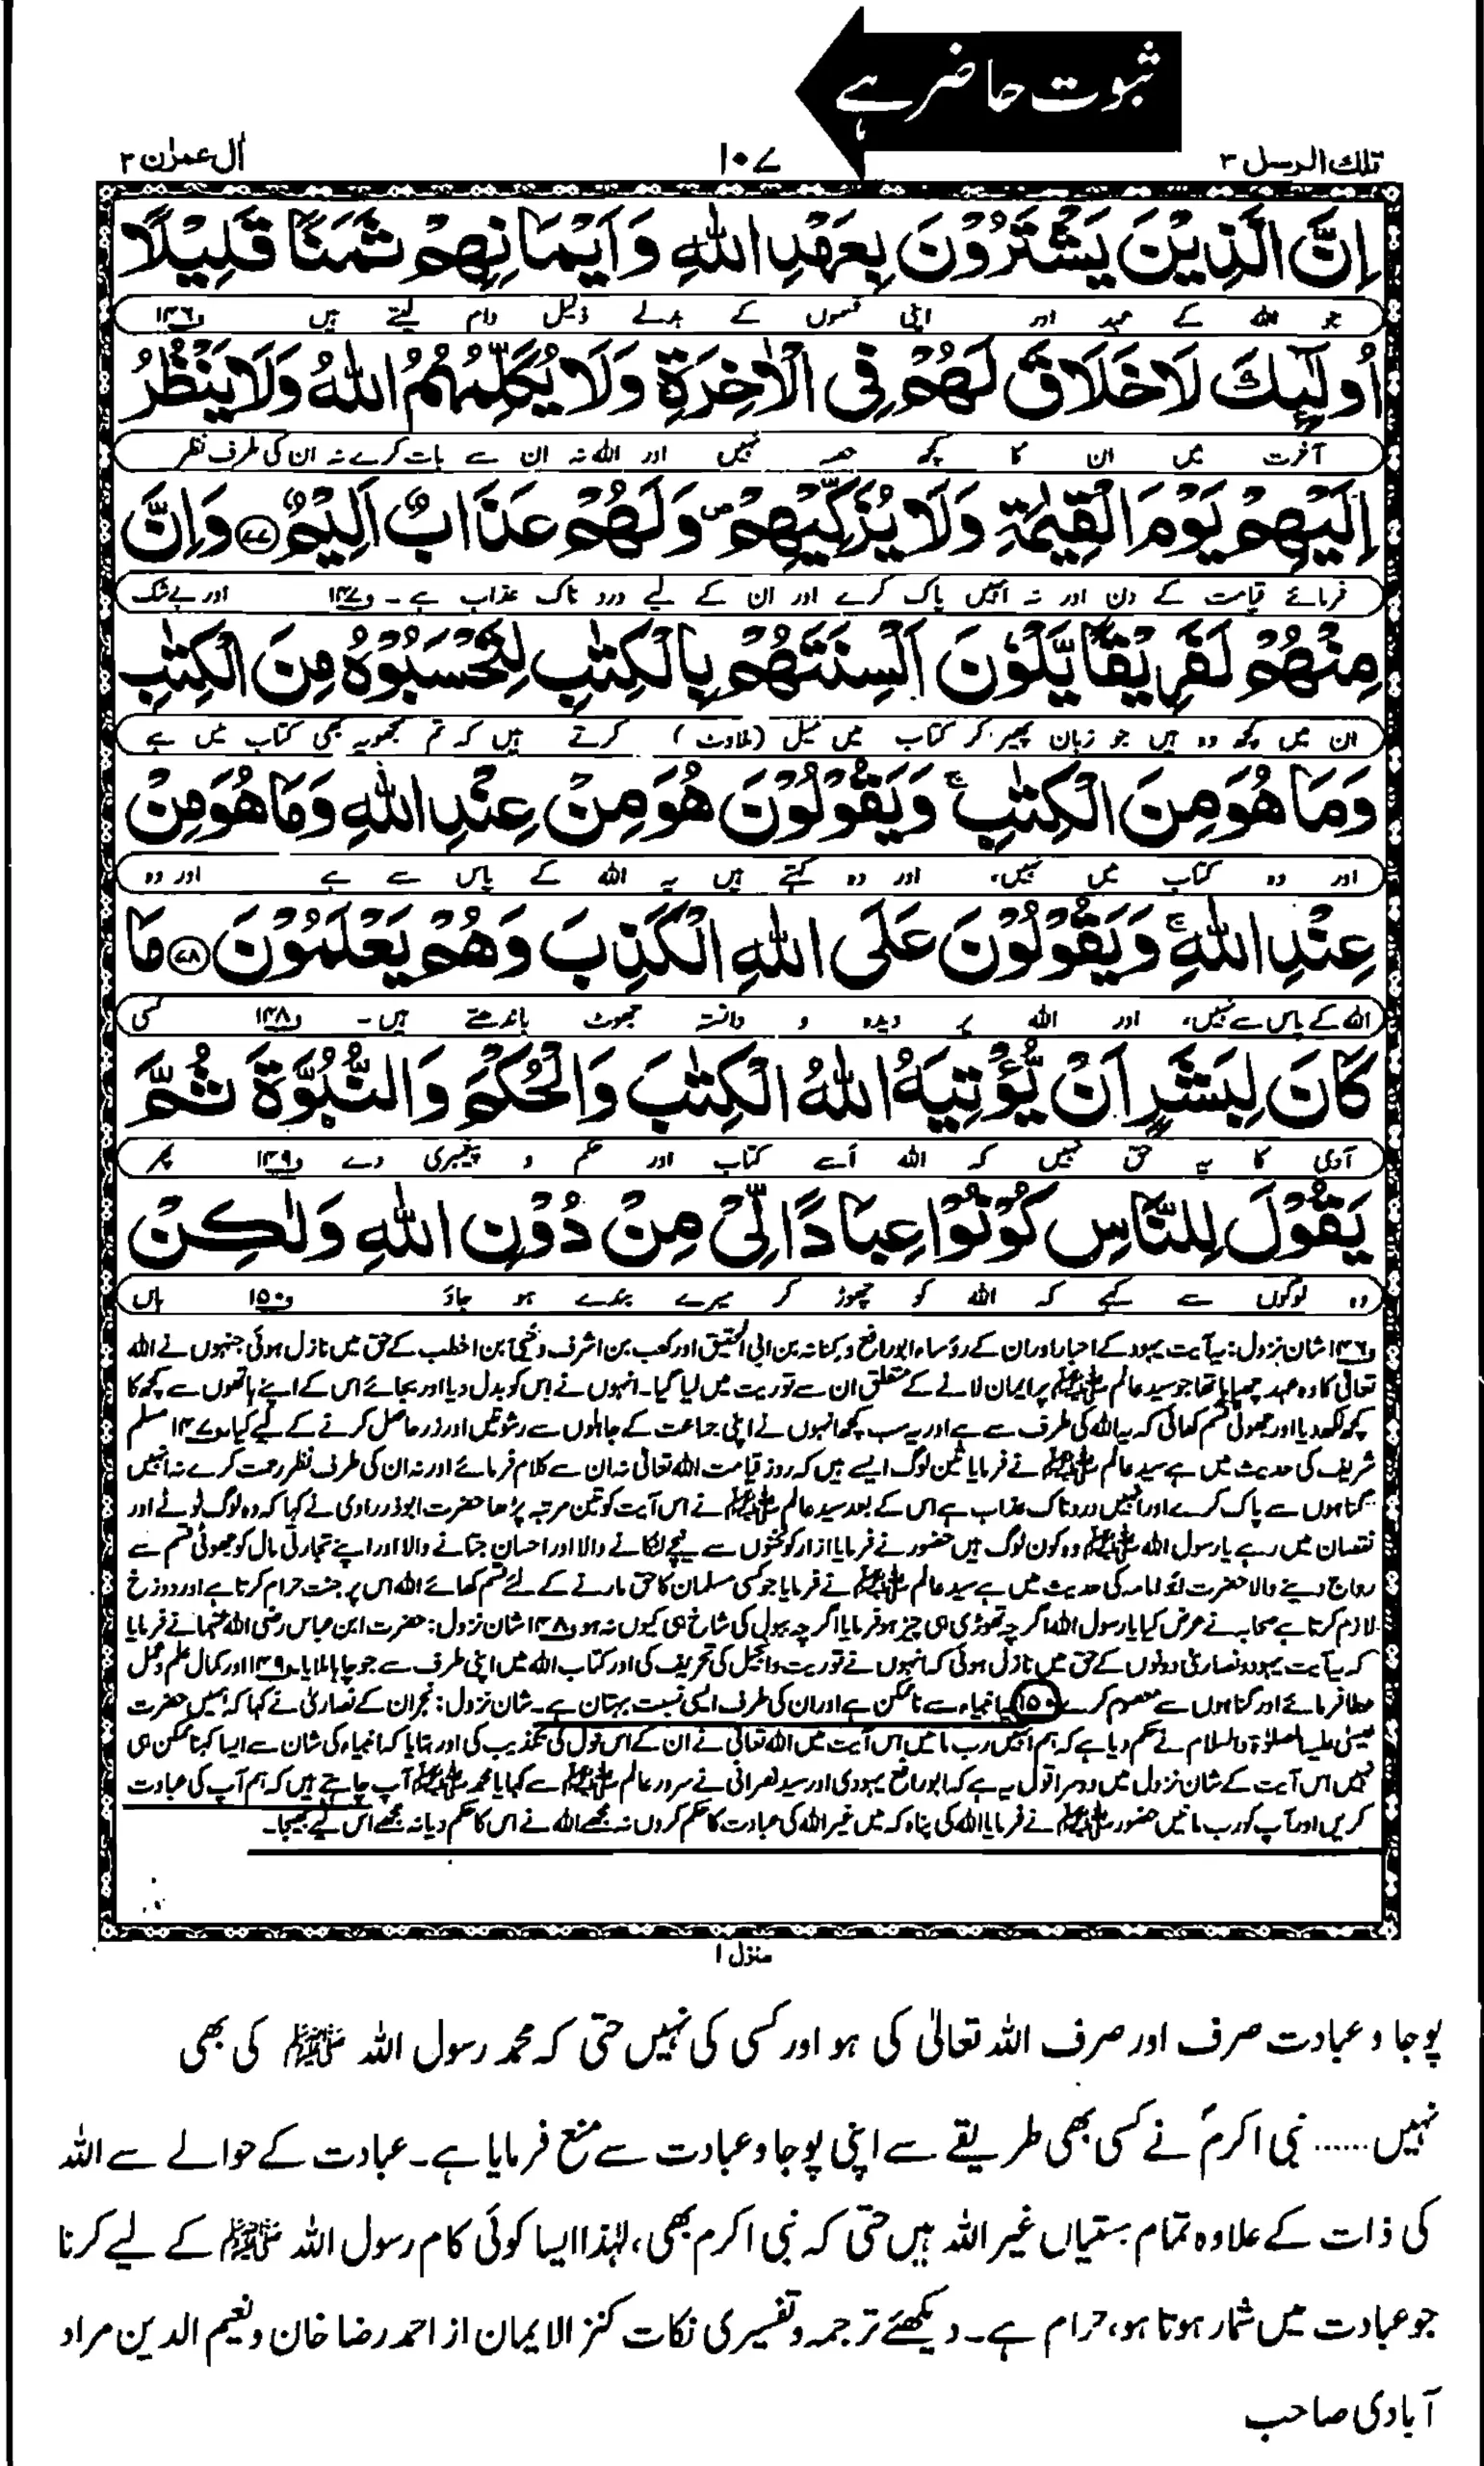 ثبوت حاضر ہے
تلك الرسل ٣
١٠٧
اٰل عمرٰن ٣
اِنَّ الَّذِيْنَ يَشْتَرُوْنَ بِعَهْدِ اللّٰهِ وَاَيْمَانِهِمْ ثَمَنًا قَلِيْلًا
جو اللہ کے عہد اور اپنی قسموں کے بدلے ذلیل دام لیتے ہیں و۱۴۶
اُولٰٓئِكَ لَا خَلَاقَ لَهُمْ فِى الْاٰخِرَةِ وَلَا يُكَلِّمُهُمُ اللّٰهُ وَلَا يَنْظُرُ
آخرت میں ان کا کچھ حصہ نہیں اور اللہ نہ ان سے بات کرے نہ ان کی طرف نظر
اِلَيْهِمْ يَوْمَ الْقِيٰمَةِ وَلَا يُزَكِّيْهِمْ ۖ وَلَهُمْ عَذَابٌ اَلِيْمٌ ﴿٧٧﴾ وَاِنَّ
فرمائے قیامت کے دن اور نہ انہیں پاک کرے اور ان کے لیے درد ناک عذاب ہے۔ و۱۴۷ اور بے شک
مِنْهُمْ لَفَرِيْقًا يَّلْوٗنَ اَلْسِنَتَهُمْ بِالْكِتٰبِ لِتَحْسَبُوْهُ مِنَ الْكِتٰبِ
ان میں کچھ وہ ہیں جو زبان پھیر کر کتاب میں میل (ملاوٹ) کرتے ہیں کہ تم سمجھو یہ بھی کتاب میں ہے
وَمَا هُوَ مِنَ الْكِتٰبِ ۚ وَيَقُوْلُوْنَ هُوَ مِنْ عِنْدِ اللّٰهِ وَمَا هُوَ مِنْ
اور وہ کتاب میں نہیں، اور وہ کہتے ہیں یہ اللہ کے پاس سے ہے اور وہ
عِنْدِ اللّٰهِ ۚ وَيَقُوْلُوْنَ عَلَى اللّٰهِ الْكَذِبَ وَهُمْ يَعْلَمُوْنَ ﴿٧٨﴾ مَا
اللہ کے پاس سے نہیں، اور اللہ پر دیدہ و دانستہ جھوٹ باندھتے ہیں۔ و۱۴۸ کسی
كَانَ لِبَشَرٍ اَنْ يُّؤْتِيَهُ اللّٰهُ الْكِتٰبَ وَالْحُكْمَ وَالنُّبُوَّةَ ثُمَّ
آدمی کا یہ حق نہیں کہ اللہ اُسے کتاب اور حکم و پیغمبری دے و۱۴۹ پھر
يَقُوْلَ لِلنَّاسِ كُوْنُوْا عِبَادًا لِّىْ مِنْ دُوْنِ اللّٰهِ وَلٰكِنْ
وہ لوگوں سے کہے کہ اللہ کو چھوڑ کر میرے بندے ہو جاؤ و۱۵۰ ہاں
و۱۴۶ شان نزول: یہ آیت یہود کے احبار اور ان کے رؤساء ابورافع و کنانہ بن ابی الحقیق اور کعب بن اشرف و حیی ابن اخطب کے حق میں نازل ہوئی جنہوں نے اللہ
تعالٰی کا وہ عہد چھپایا تھا جو سید عالم ﷺ پر ایمان لانے کے متعلق ان سے توریت میں لیا گیا۔ انہوں نے اس کو بدل دیا اور بجائے اس کے اپنے ہاتھوں سے کچھ کا
کچھ لکھ دیا اور جھوٹی قسم کھائی کہ یہ اللہ کی طرف سے ہے اور یہ سب کچھ انہوں نے اپنی جماعت کے جاہلوں سے رشوتیں اور زر حاصل کرنے کے لیے کیا۔ و۱۴۷ مسلم
شریف کی حدیث میں ہے سید عالم ﷺ نے فرمایا تین لوگ ایسے ہیں کہ روز قیامت اللہ تعالٰی نہ ان سے کلام فرمائے اور نہ ان کی طرف نظر رحمت کرے نہ انہیں
گناہوں سے پاک کرے اور انہیں دردناک عذاب ہے اس کے بعد سید عالم ﷺ نے اس آیت کو تین مرتبہ پڑھا حضرت ابوذر راوی نے کہا کہ وہ لوگ ٹوٹے اور
نقصان میں رہے یا رسول اللہ ﷺ وہ کون لوگ ہیں حضور نے فرمایا ازار کو ٹخنوں سے نیچے لٹکانے والا اور احسان جتانے والا اور اپنے تجارتی مال کو جھوٹی قسم سے
رواج دینے والا حضرت ابو امامہ کی حدیث میں ہے سید عالم ﷺ نے فرمایا جو کسی مسلمان کا حق مارنے کے لئے قسم کھائے اللہ اس پر جنت حرام کرتا ہے اور دوزخ
لازم کرتا ہے صحابہ نے عرض کیا یا رسول اللہ اگرچہ تھوڑی ہی چیز ہو فرمایا اگرچہ ببول کی شاخ ہی کیوں نہ ہو و۱۴۸ شان نزول: حضرت ابن عباس رضی اللہ عنہما نے فرمایا
کہ یہ آیت یہود و نصارٰی دونوں کے حق میں نازل ہوئی کہ انہوں نے توریت و انجیل کی تحریف کی اور کتاب اللہ میں اپنی طرف سے جو چاہا ملایا۔ و۱۴۹ اور کمال علم و عمل
عطا فرمائے اور گناہوں سے معصوم کرے و۱۵۰ یہ انبیاء سے ناممکن ہے اور ان کی طرف ایسی نسبت بہتان ہے۔ شان نزول: نجران کے نصارٰی نے کہا کہ ہمیں حضرت
عیسٰی علیہ الصلوٰۃ والسلام نے حکم دیا ہے کہ ہم انہیں رب مانیں اس آیت میں اللہ تعالٰی نے ان کے اس قول کی تکذیب کی اور بتایا کہ انبیاء کی شان سے ایسا کہنا ممکن ہی
نہیں اس آیت کے شان نزول میں دوسرا قول یہ ہے کہ ابو رافع یہودی اور سید نصرانی نے سرور عالم ﷺ سے کہا یا محمد ﷺ آپ چاہتے ہیں کہ ہم آپ کی عبادت
کریں اور آپ کو رب مانیں حضور ﷺ نے فرمایا اللہ کی پناہ کہ میں غیر اللہ کی عبادت کا حکم کروں نہ مجھے اللہ نے اس کا حکم دیا نہ مجھے اس لیے بھیجا۔
منزل ١
پوجا و عبادت صرف اور صرف اللہ تعالیٰ کی ہو اور کسی کی نہیں حتی کہ محمد رسول اللہ ﷺ کی بھی
نہیں...... نبی اکرمؐ نے کسی بھی طریقے سے اپنی پوجا و عبادت سے منع فرمایا ہے۔ عبادت کے حوالے سے اللہ
کی ذات کے علاوہ تمام ہستیاں غیر اللہ ہیں حتی کہ نبی اکرم بھی، لہٰذا ایسا کوئی کام رسول اللہ ﷺ کے لیے کرنا
جو عبادت میں شمار ہوتا ہو، حرام ہے۔ دیکھئے ترجمہ و تفسیری نکات کنز الایمان از احمد رضا خان و نعیم الدین مراد
آبادی صاحب